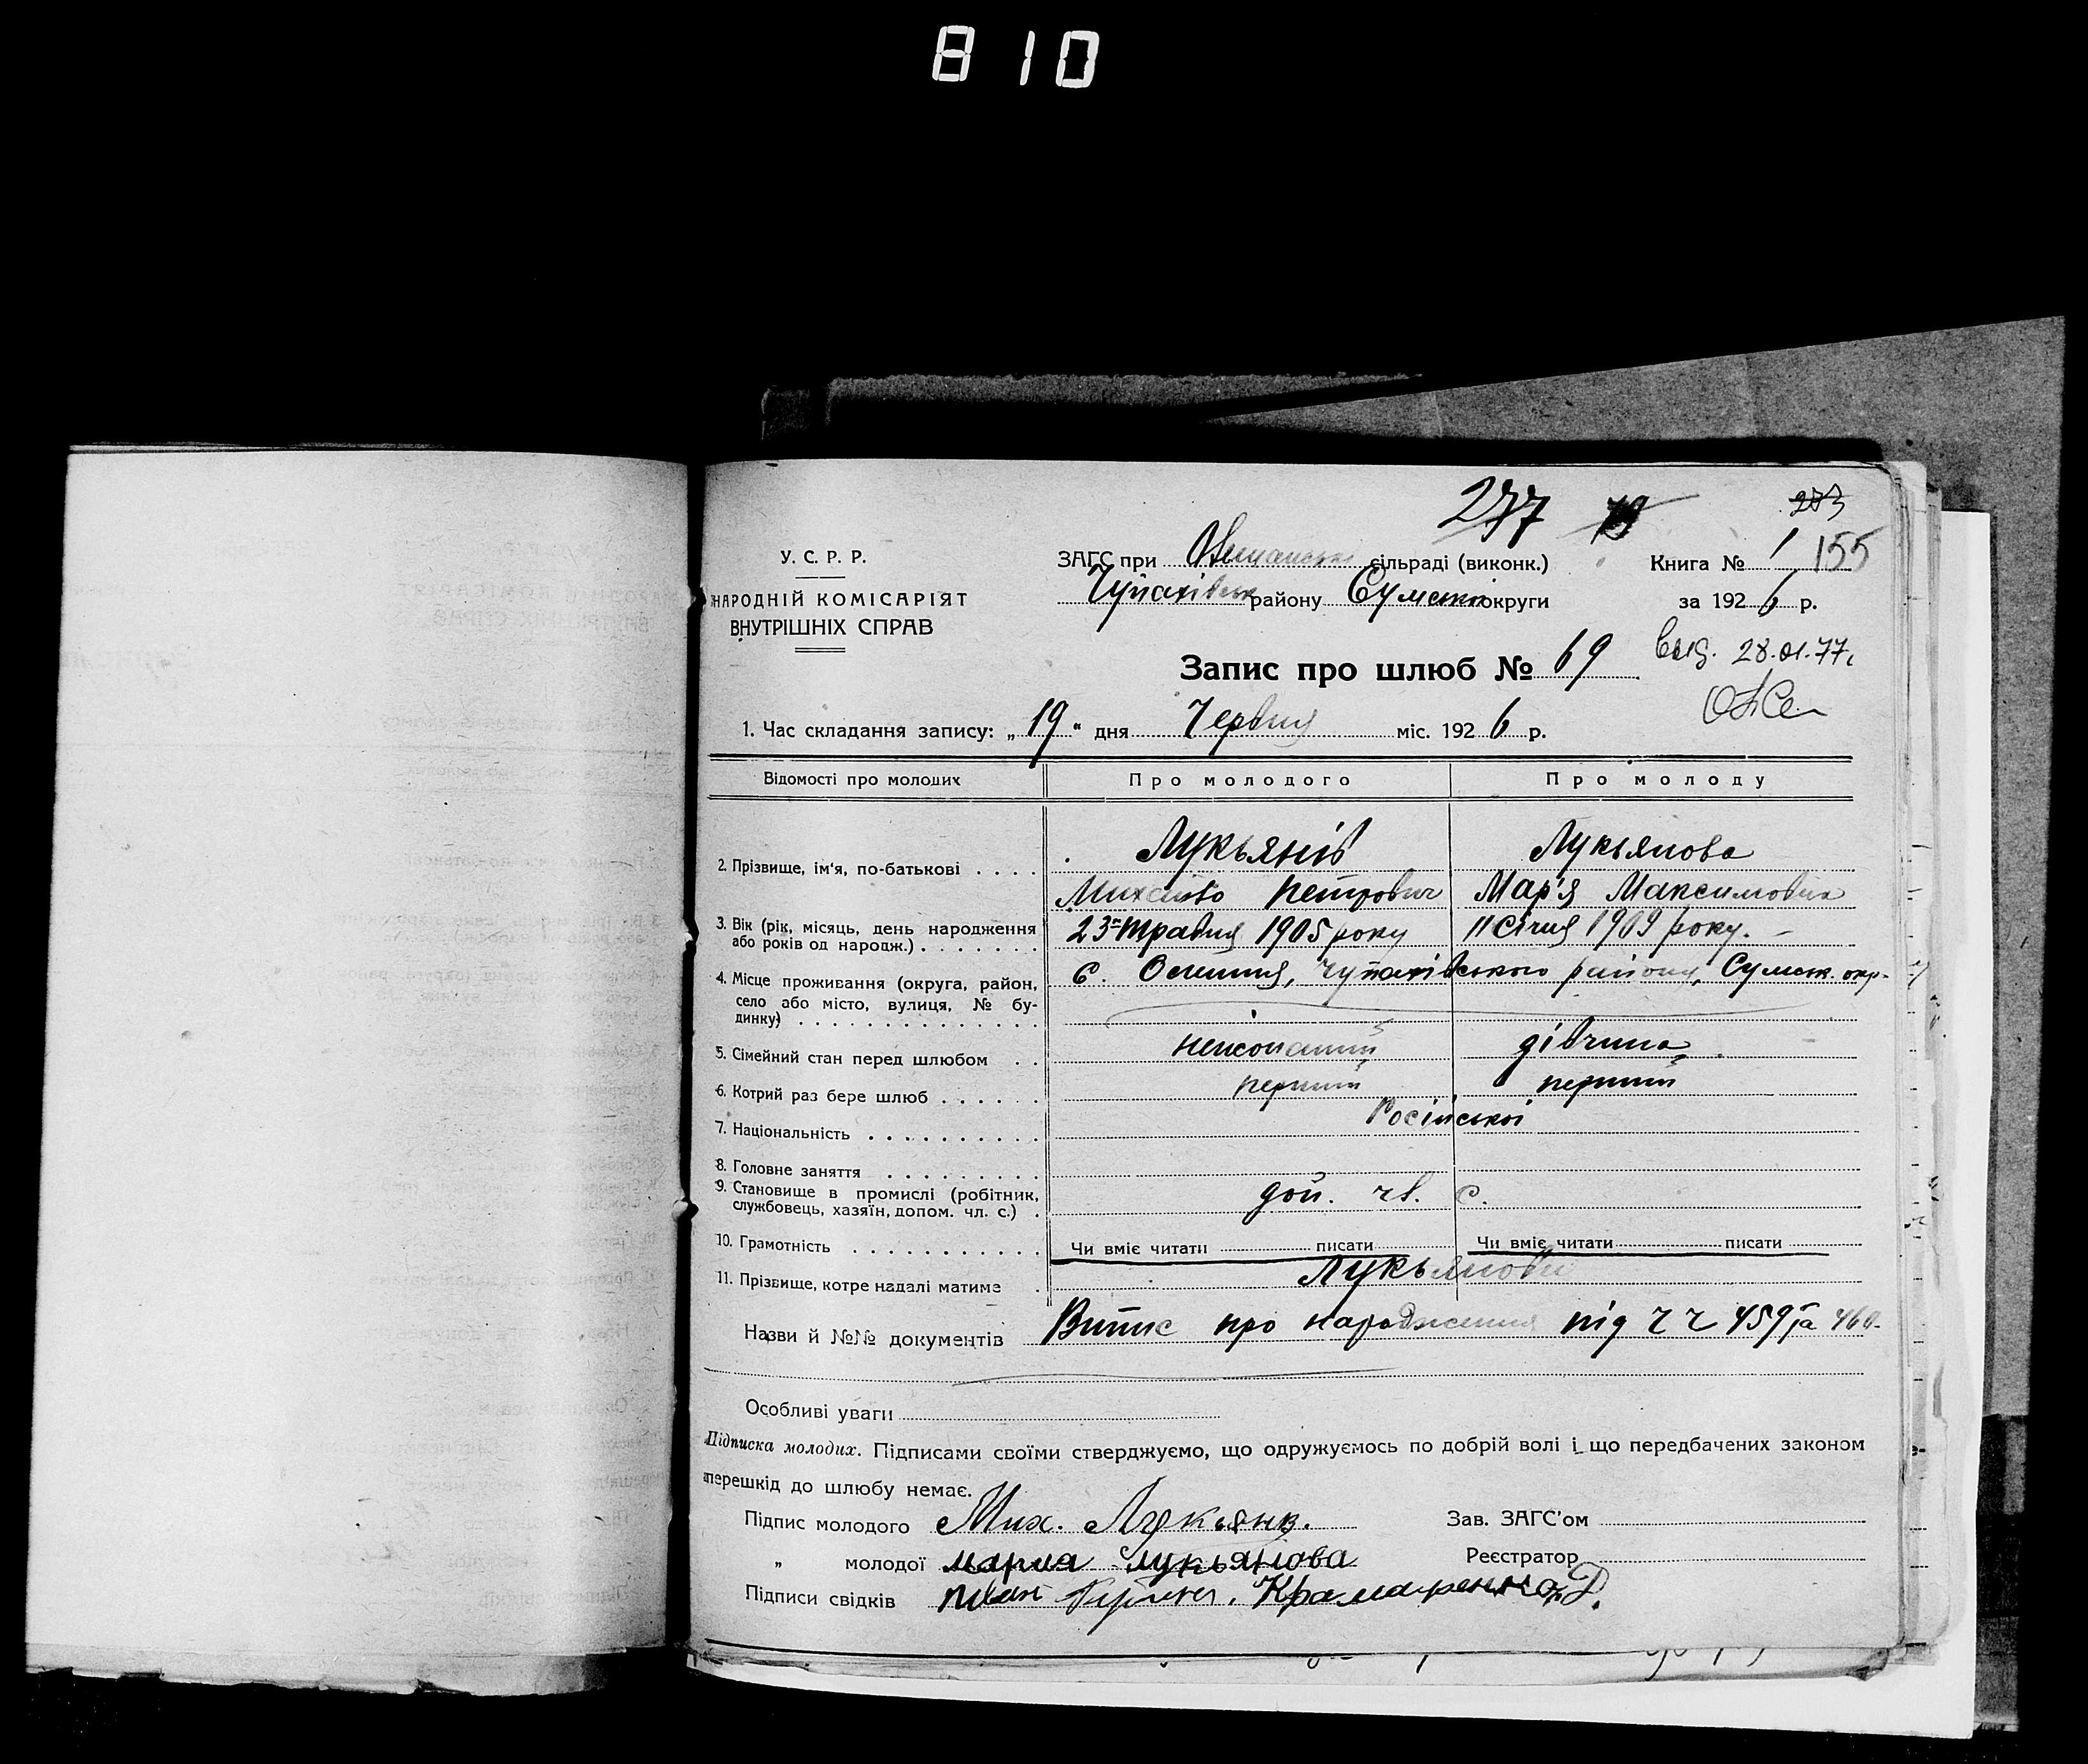 810
277 273
У. С. Р. Р.
НАРОДНІЙ КОМІСАРІЯТ
ВНУТРІШНІХ СПРАВ
ЗАГС при сільраді (виконк.) Книга № 1 155
Чупахівськ району Сумської округи за 1926 р.
Запис про шлюб № 69 выд. 28.01.77г
1. Час складання запису: „19“ дня Червня міс. 1926 р.
Відомості про молодих Про молодого Про молоду
2. Прізвище, ім'я, по-батькові . . . . Лукьянів Лукьянова
Михайло Петрович Мар'я Максимовна
3. Вік (рік, місяць, день народження або років од народж.) . . . . . . . 23 травня 1905 року 11 Січня 1909 року. –
4. Місце проживання (округа, район, село або місто, вулиця, № будинку) . . . . . . . . . . . . . . . с. Чупахівського району, Сумськ. окр.
5. Сімейний стан перед шлюбом . . дівчина
6. Котрий раз бере шлюб . . . . . . перший перший
7. Національність . . . . . . . . . . Російської
8. Головне заняття . . . . . . . . .
9. Становище в промислі (робітник, службовець, хазяїн, допом. чл. с.) . доп. чл. с.
10. Грамотність . . . . . . . . . . . Чи вміє читати писати Чи вміє читати писати
11. Прізвище, котре надалі матиме . Лукьянови
Назви й №№ документів Витис про народження під ч ч 459 та 460.
Особливі уваги
Підписка молодих. Підписами своїми стверджуємо, що одружуємось по добрій волі і що передбачених законом
перешкід до шлюбу немає.
Підпис молодого Мих. Лукьянв. Зав. ЗАГС'ом
„ молодої мария лукьянова Реєстратор
Підписи свідків Крамаренко Д.